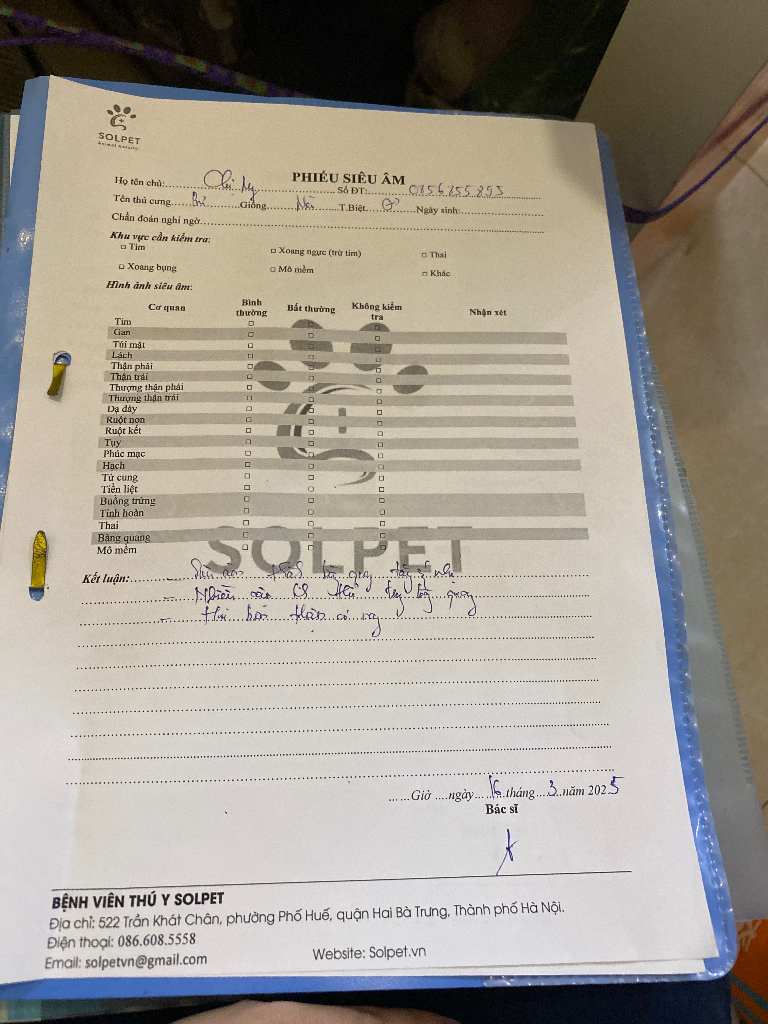 SOLPET
Animal Hospital
PHIẾU SIÊU ÂM
Họ tên chủ: Chị My Số ĐT: 0856255895
Tên thú cưng Giống T.Biệt Ngày sinh:
Chẩn đoán nghi ngờ
Khu vực cần kiểm tra:
□ Tim □ Xoang ngực (trừ tim) □ Thai
□ Xoang bụng □ Mô mềm □ Khác
Hình ảnh siêu âm:
Cơ quan Bình thường Bất thường Không kiểm tra Nhận xét
Tim □ □ □
Gan □ □ □
Túi mật □ □ □
Lách □ □ □
Thận phải □ □ □
Thận trái □ □ □
Thượng thận phải □ □ □
Thượng thận trái □ □ □
Dạ dày □ □ □
Ruột non □ □ □
Ruột kết □ □ □
Tụy □ □ □
Phúc mạc □ □ □
Hạch □ □ □
Tử cung □ □ □
Tiền liệt □ □ □
Buồng trứng □ □ □
Tinh hoàn □ □ □
Thai □ □ □
Bàng quang □ □ □
Mô mềm □ □ □
SOLPET
Kết luận: - thành bàng quang dày nhẹ
- Nhiều bàng quang
- thận
... ...Giờ ....ngày.....16.tháng...3.năm 2025
Bác sĩ
BỆNH VIỆN THÚ Y SOLPET
Địa chỉ: 522 Trần Khát Chân, phường Phố Huế, quận Hai Bà Trưng, Thành phố Hà Nội.
Điện thoại: 086.608.5558
Email: solpetvn@gmail.com Website: Solpet.vn